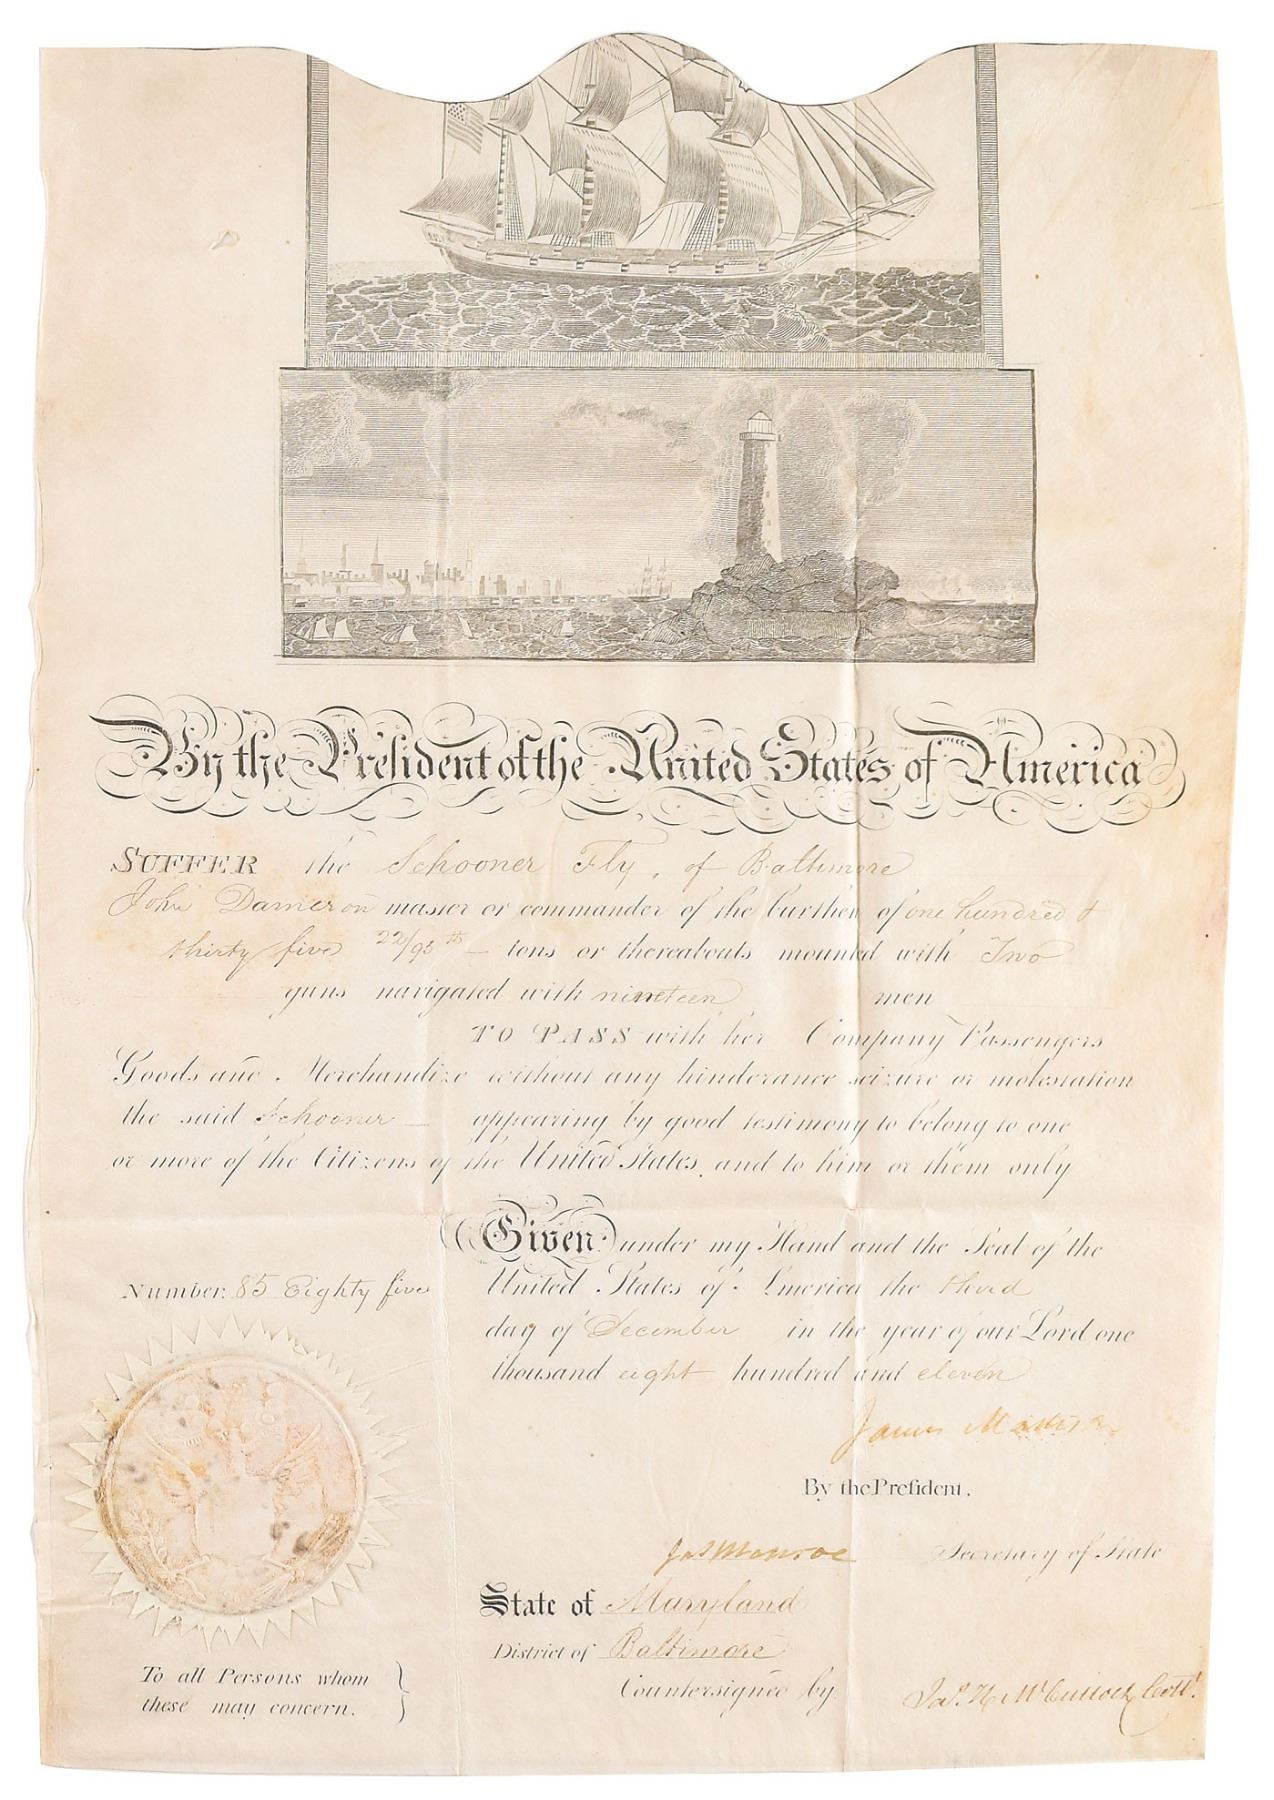 By the President of the United States of America
SUFFER the Schooner Fly, of Baltimore
John Dameron master or commander of the burthen of one hundred &
thirty five 22/95th tons or thereabouts mounted with Two
guns navigated with nineteen men
TO PASS with her Company Passengers
Goods and Merchandize without any hinderance seizure or molestation
the said Schooner appearing by good testimony to belong to one
or more of the Citizens of the United States, and to him or them only
Given under my Hand and the Seal of the
Number: 85 Eighty five United States of America the third
day of December in the year of our Lord one
thousand eight hundred and eleven
James Madison
By the Preſident.
Jas Monroe Secretary of State
State of Maryland
District of Baltimore
To all Persons whom
these may concern.
Countersigned by
Jas. H. McCulloch Collr.